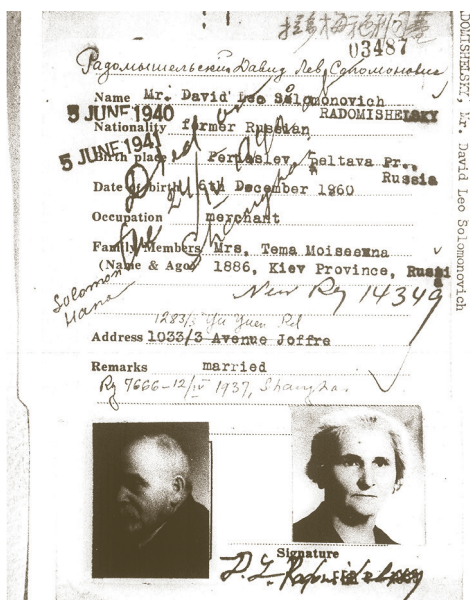 03487
Радомышельский Давид Лев Соломонович
Name Mr. David Leo Solomonovich
RADOMISHELSKY
5 JUNE 1940
Nationality former Russian
5 JUNE 1941
Birth place Pereslev, Peltava Pr.,
Russia
Died on
24/IV
Shanghai
Date of birth 6th December 1960
Occupation merchant
Family Members Mrs. Tema Moiseevna
(Name & Age) 1886, Kiev Province, Russia
Solomon
Hana
New Reg 14349
1283/3 Yu Yuen Rd
Address 1033/3 Avenue Joffre
Remarks married
Reg 7666-12/IV 1937, Shanghai.
Signature
RADOMISHELSKY, Mr. David Leo Solomonovich